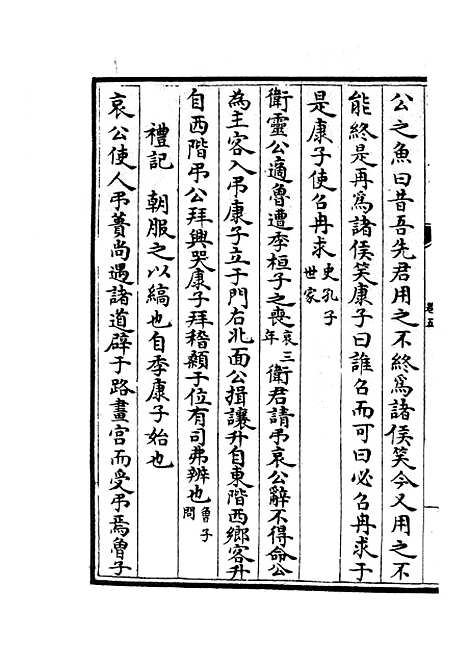 公之魚曰昔吾先君用之不終爲諸侯笑今又用之不
能終是再爲諸侯笑康子曰誰召而可曰必召冉求于
是康子使召冉求史孔子世家
衛靈公適魯遭季桓子之喪哀三年衛君請弔哀公辭不得命公
為主客入弔康子立于門右北面公揖讓升自東階西鄉客升
自西階弔公拜興哭康子拜稽顙于位有司弗辨也曾子問
禮記 朝服之以縞也自季康子始也
哀公使人弔蕢尚遇諸道辟于路畫宮而受弔焉曾子
卷五